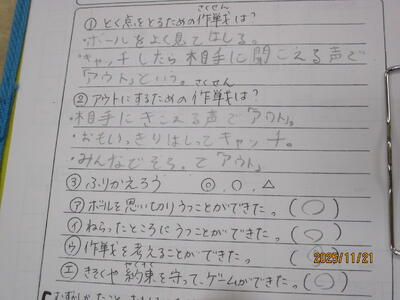 さくせん
①とく点をとるための作戦は?
・ボールをよく見てはしる。
・キャッチしたら相手に聞こえる声で
「アウト」という。
さくせん
②アウトにするための作戦は?
・相手にきこえる声で「アウト」。
・おもいっきりはしってキャッチ。
・みんなでそろって「アウト」
③ふりかえろう ◎、○、△
㋐ボールを思い切りうつことができた。(○)
㋑ねらったところにうつことができた。(○)
㋒作戦を考えることができた。(○)
㋓きそくや約束を守って、ゲームができた。(○)
やくそく
2025/11/21